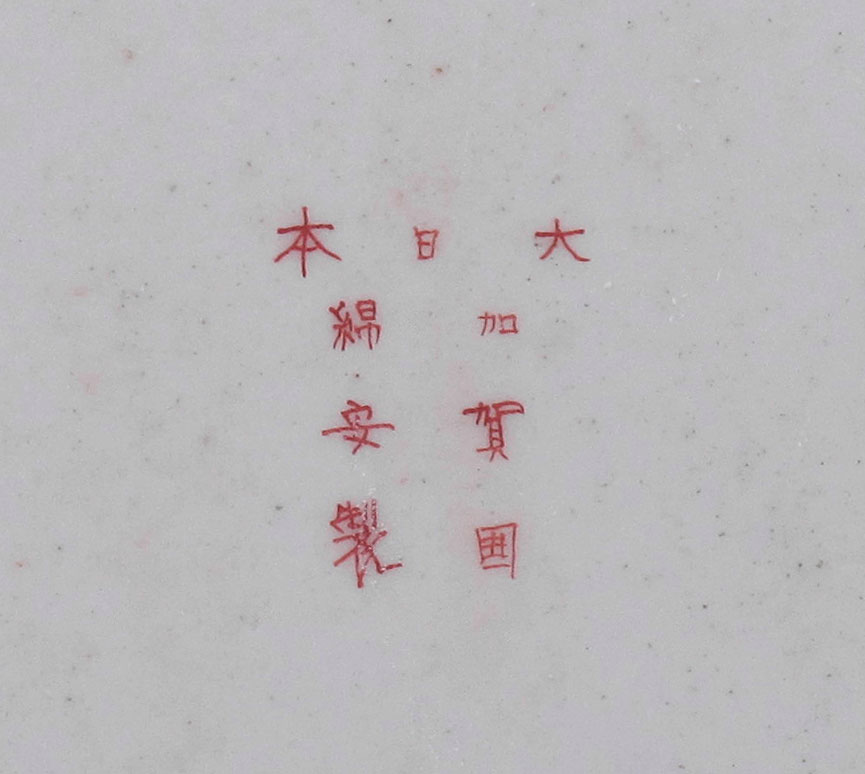 大日本
加賀囯
綿安製